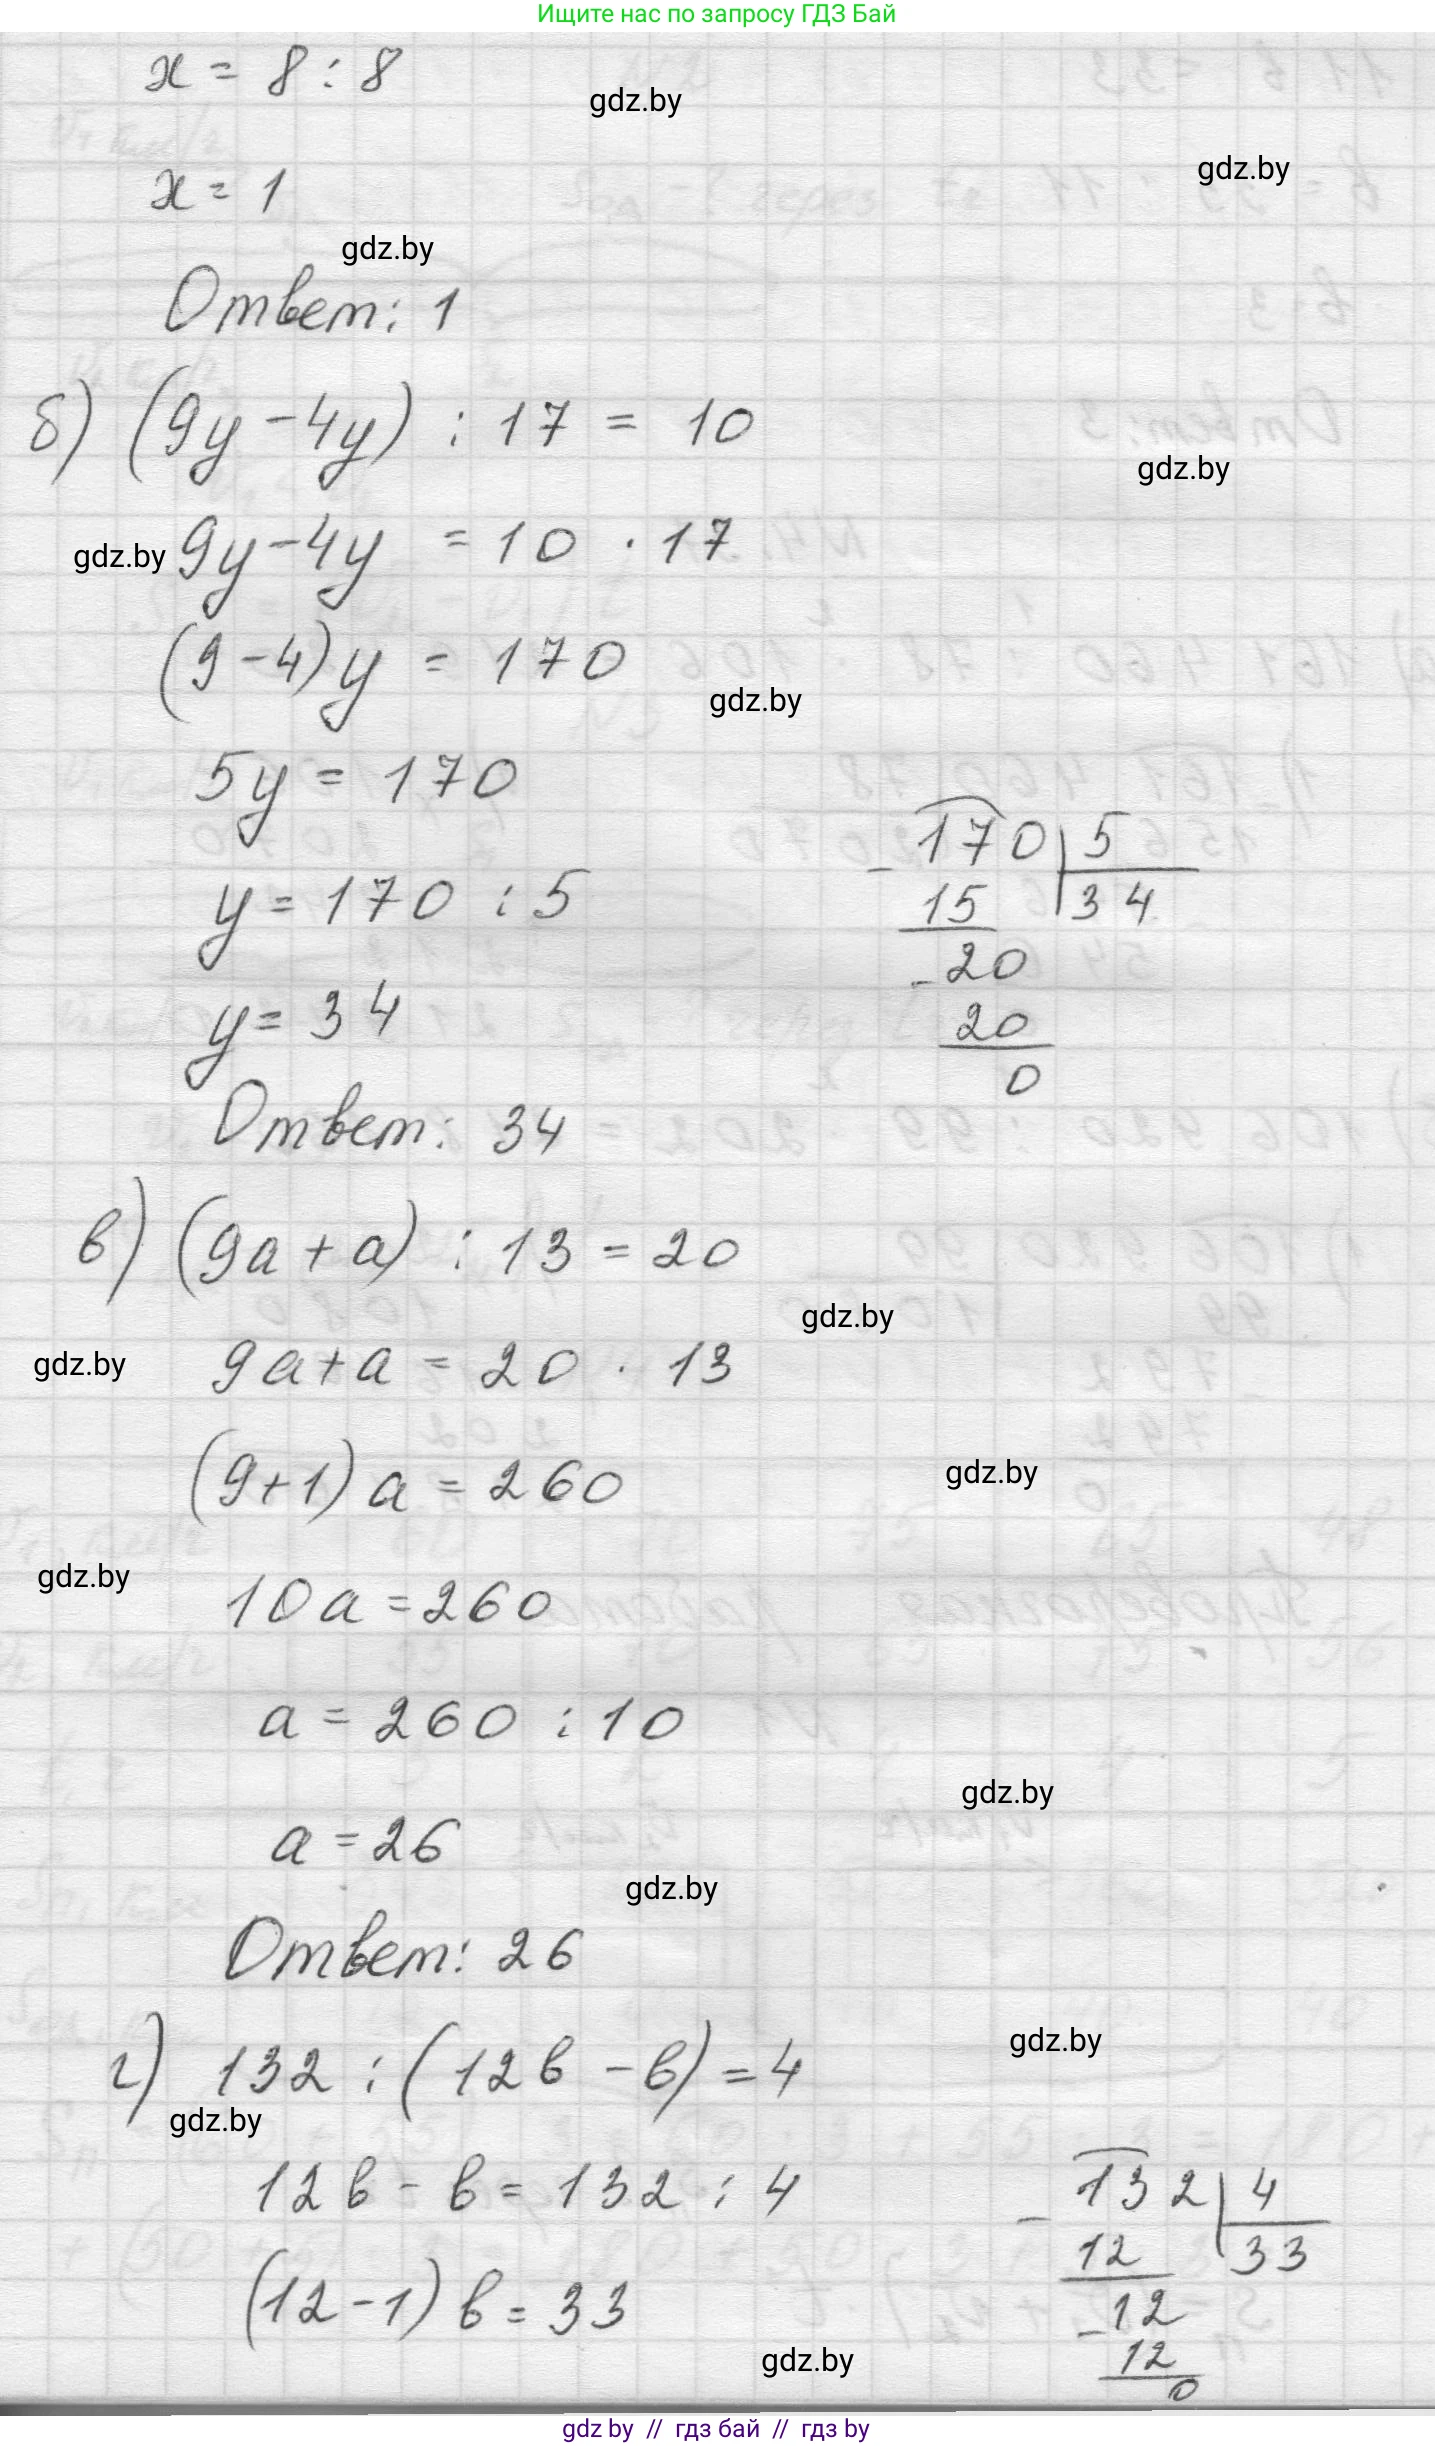 Ищите нас по запросу ГДЗ Бай
x = 8 : 8
gdz.by
gdz.by
x = 1
gdz.by
Ответ: 1
б) (9y - 4y) : 17 = 10
gdz.by
gdz.by
9y - 4y = 10 · 17
(9 - 4) y = 170
gdz.by
5y = 170
170 5
y = 170 : 5
- 15 34
- 20
y = 34
20
0
Ответ: 34
в) (9a + a) : 13 = 20
gdz.by
gdz.by
9a + a = 20 · 13
(9 + 1) a = 260
gdz.by
gdz.by
10a = 260
a = 260 : 10
gdz.by
a = 26
gdz.by
Ответ: 26
г) 132 : (12b - b) = 4
gdz.by
gdz.by
12b - b = 132 : 4
- 132 4
12 33
(12 - 1) b = 33
- 12
12
0
gdz.by
gdz by // гдз бай // гдз by